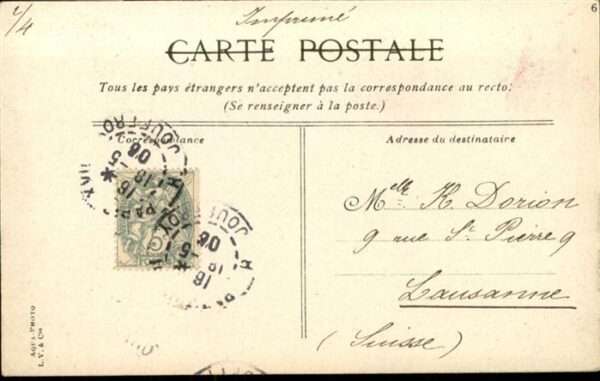 2/4
Imprimé
6
CARTE POSTALE
Tous les pays étrangers n'acceptent pas la correspondance au recto;
(Se renseigner à la poste.)
Correspondance
Adresse du destinataire
PARIS
JOUFFROY
Melle H. Dorion
9 rue St Pierre 9
Lausanne
(Suisse)
AQUA-PHOTO
L. V. & Cie